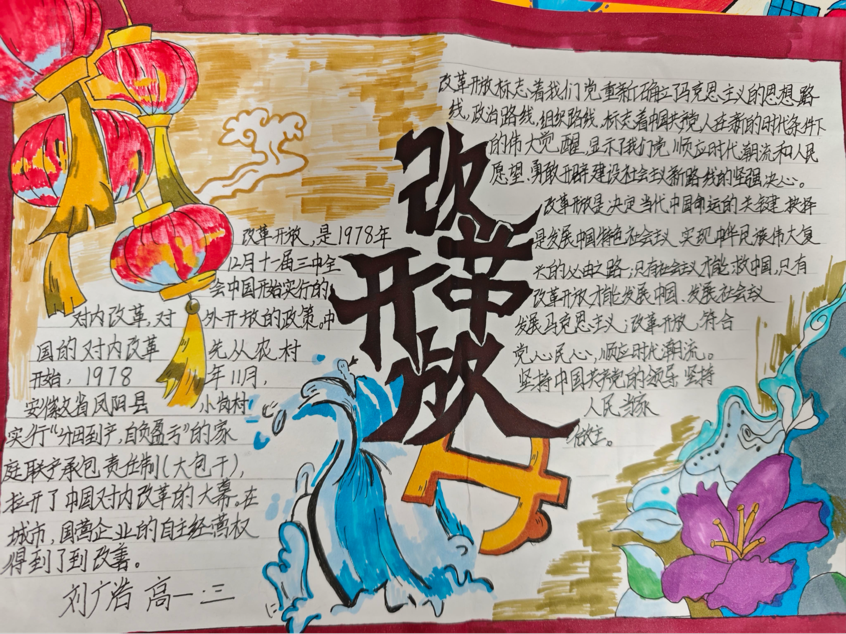 改革开放
改革开放,是1978年
12月十一届三中全
会中国开始实行的
对内改革,对外开放的政策。中
国的对内改革先从农村
开始,1978年11月,
安徽省凤阳县小岗村
实行“分田到户,自负盈亏”的家
庭联产承包责任制(大包干),
拉开了中国对内改革的大幕。在
城市,国营企业的自主经营权
得到了到改善。
刘广浩 高一·三
改革开放标志着我们党重新确立马克思主义的思想路
线,政治路线,组织路线,标志着中国共产党人在新的时代条件下
的伟大觉醒,显示了我们党顺应时代潮流和人民
愿望,勇敢开辟建设社会主义新路线的坚强决心。
改革开放是决定当代中国命运的关键抉择
是发展中国特色社会主义、实现中华民族伟大复
兴的必由之路;只有社会主义才能救中国,只有
改革开放才能发展中国、发展社会主义
发展马克思主义;改革开放,符合
党心民心,顺应时代潮流。
坚持中国共产党的领导 坚持
人民当家
做主。